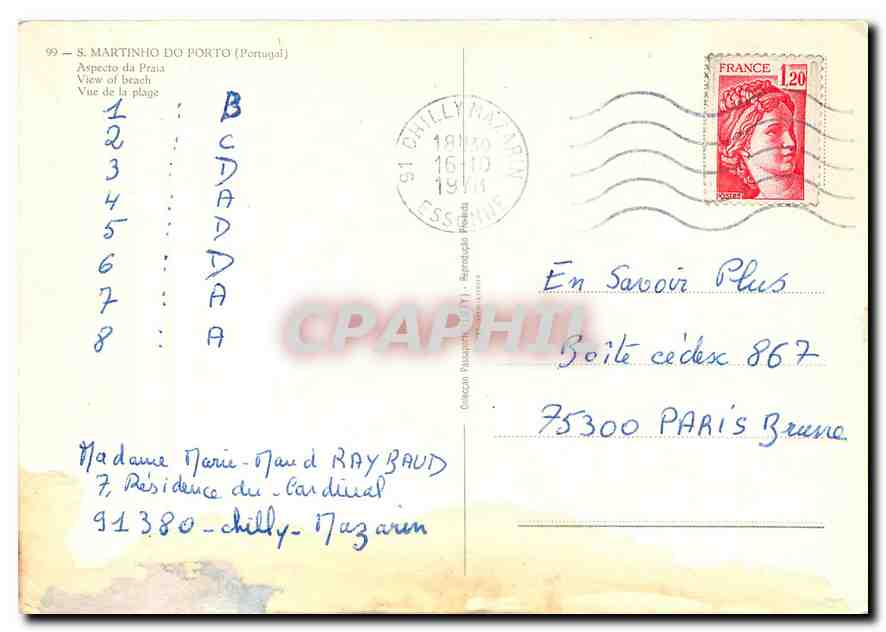 99 — S. MARTINHO DO PORTO (Portugal)
Aspecto da Praia
View of beach
Vue de la plage
1 : B
2 : C
3 : D
4 : A
5 : D
6 : D
7 : A
8 : A
Madame Marie-Maud RAYBAUD
7, Résidence du Cardinal
91380 - Chilly - Mazarin
91 CHILLY MAZARIN
18H30
16-10
ESSONNE
FRANCE 1,20
POSTES
Colecção Passaporte (Y) - Reprodução Proibida
CPAPHIL
En Savoir Plus
Boîte cédex 867
75300 PARIS Brune